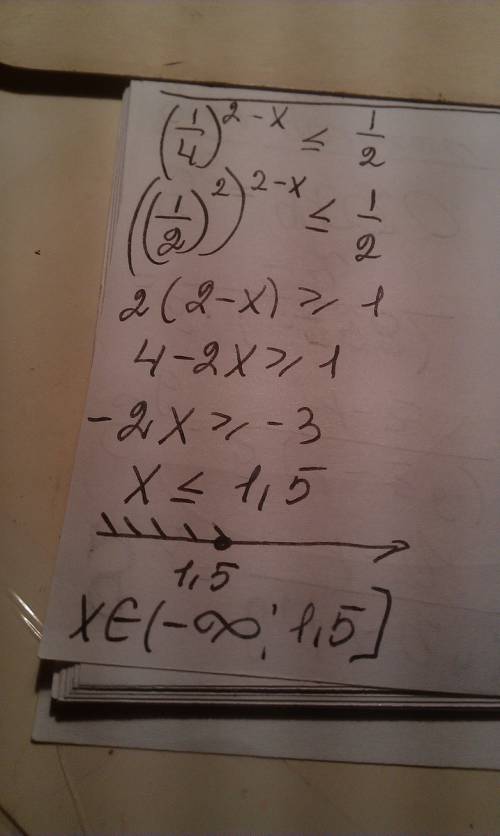 (1/4)^{2-x} ≤ 1/2
((1/2)^2)^{2-x} ≤ 1/2
2(2-x) ≥ 1
4-2x ≥ 1
-2x ≥ -3
x ≤ 1,5
1,5
x∈(-∞; 1,5]